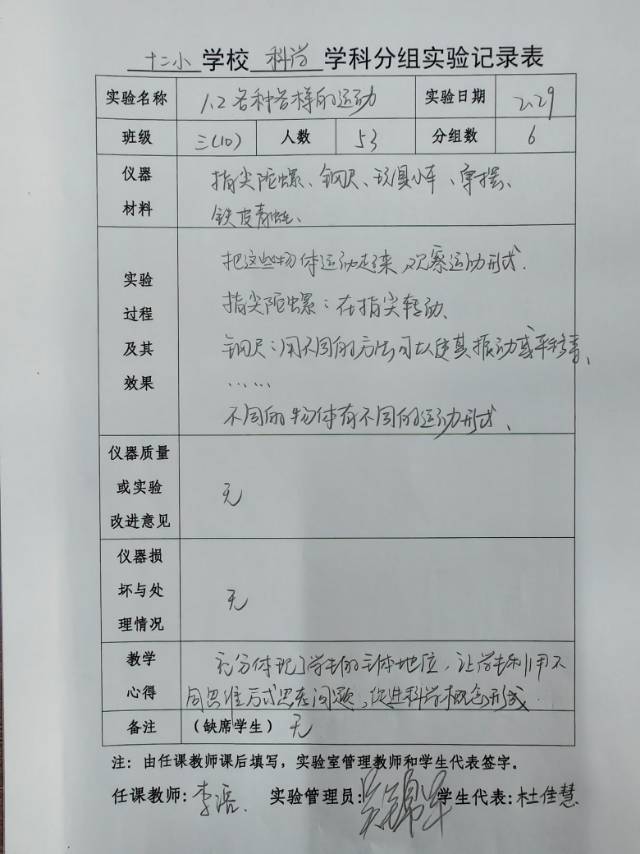 十二小 学校 科学 学科分组实验记录表
实验名称 1.2各种各样的运动 实验日期 2.29
班级 三(10) 人数 53 分组数 6
仪器材料 指尖陀螺、钢尺、玩具小车、单摆、
铁皮青蛙、
实验过程及其效果
把这些物体运动起来,观察运动形式.
指尖陀螺:在指尖转动、
钢尺:用不同的方法可以使其振动或平移着、
……
不同的物体有不同的运动形式、
仪器质量或实验改进意见 无
仪器损坏与处理情况 无
教学心得 充分体现了学生的主体地位,让学生利用不
同思维方式思在问题,促进科学概念形成.
备注 (缺席学生) 无
注:由任课教师课后填写,实验室管理教师和学生代表签字。
任课教师:李 实验管理员: 学生代表:杜佳慧